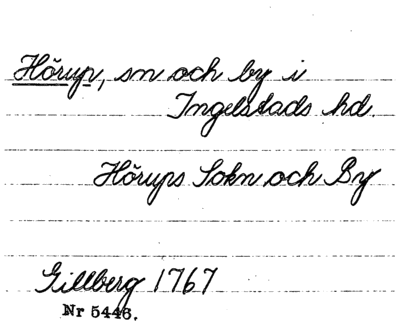 Hörup, sn och by i
Ingelstads hd.
Hörups Sokn och By
Gillberg 1767
Nr 5446.